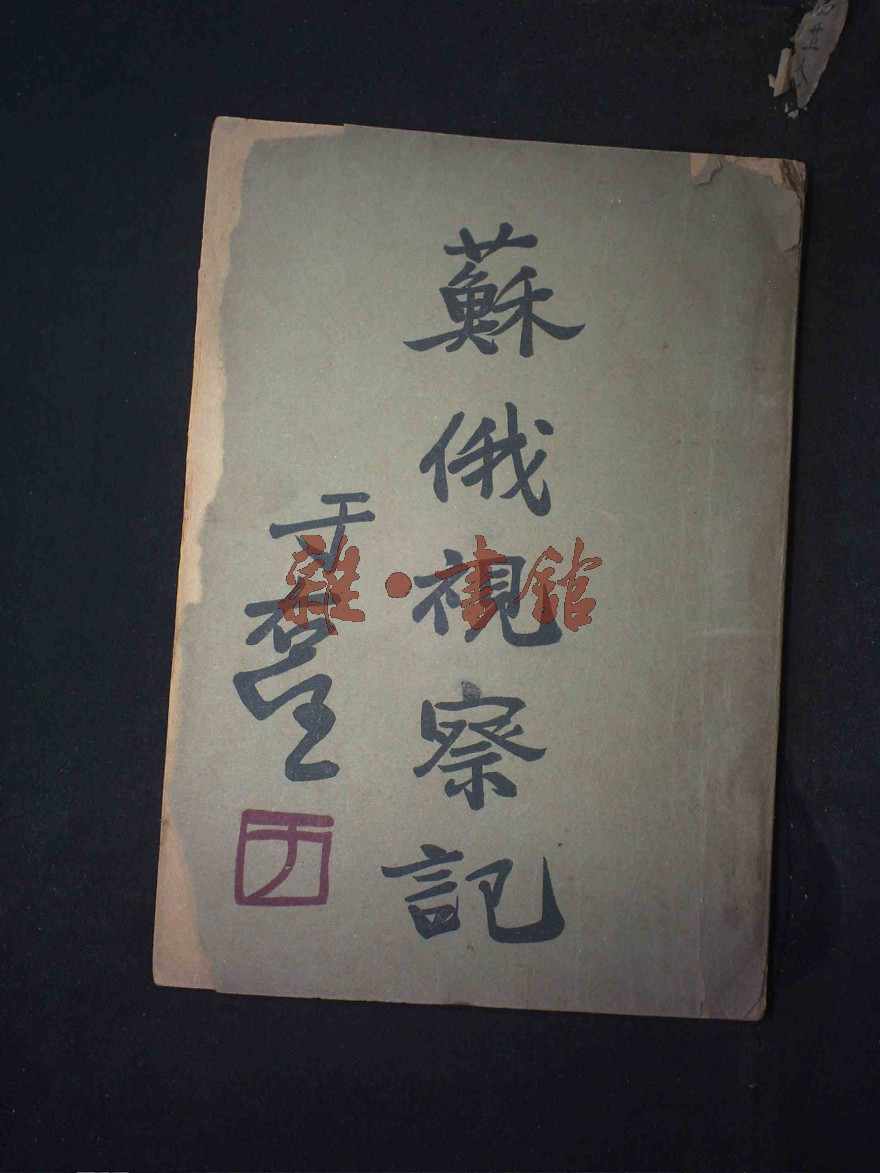 蘇俄視察記
于右任
雜·書館